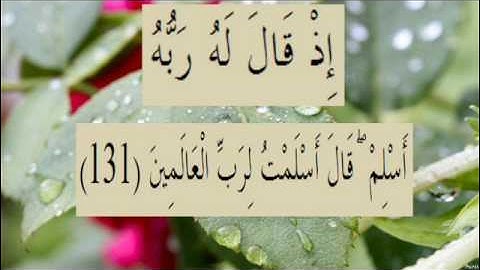 إِذْ قَالَ لَهُ رَبُّهُ
أَسْلِمْ ۖ قَالَ أَسْلَمْتُ لِرَبِّ الْعَالَمِينَ (131)